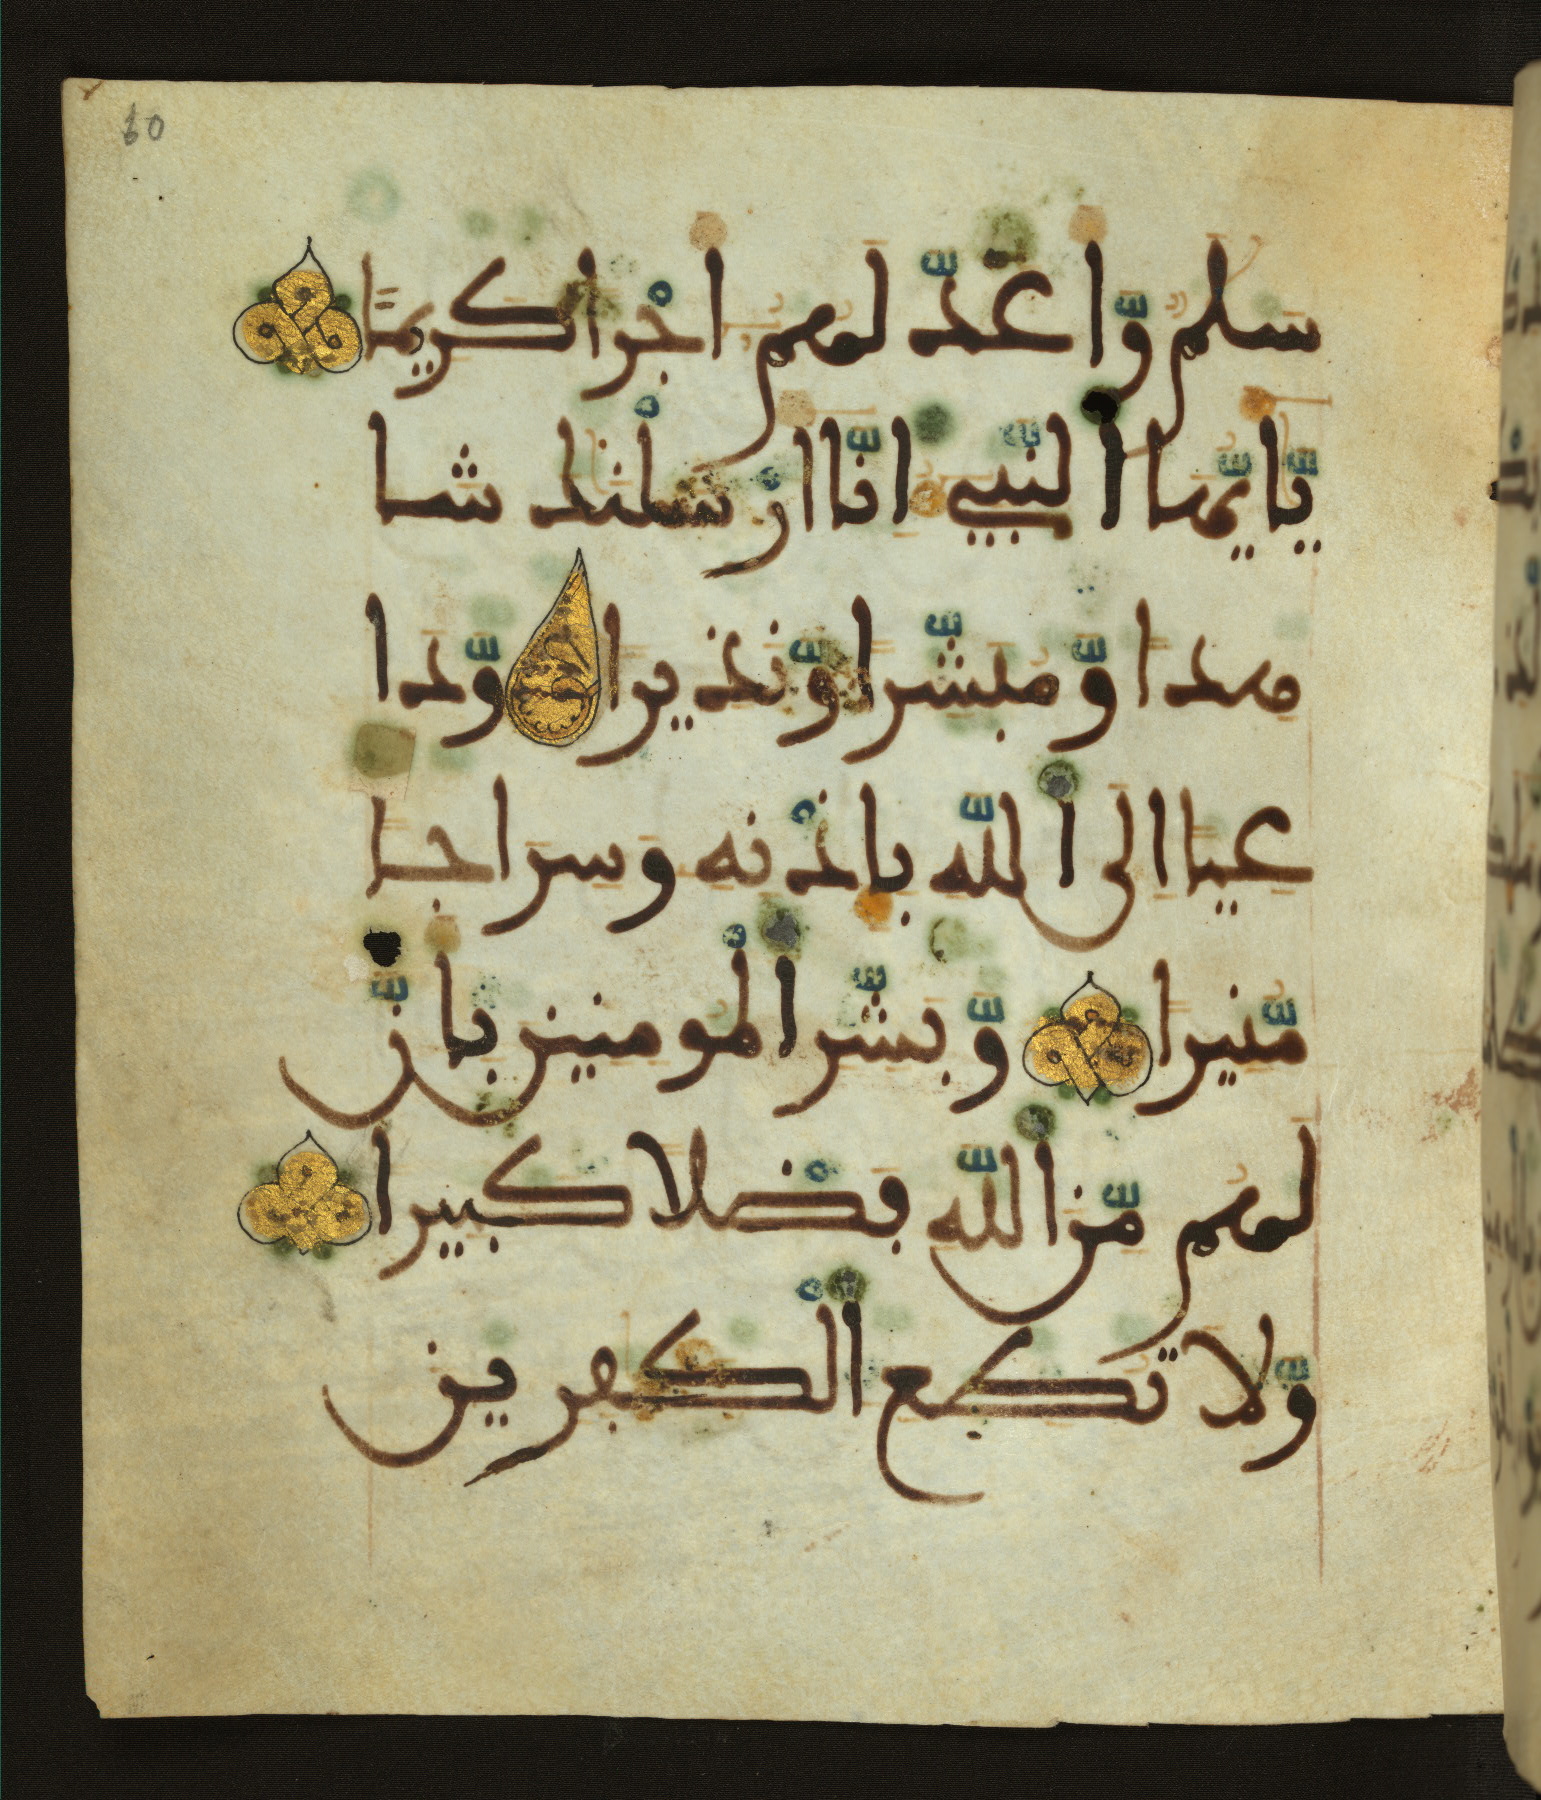 60
سلم وّاعدّ لهم اجْرا كريمًا
يّايّها النّبيء انّا ارْسلْنٰك شا
هدا وّمبشّرا وّنذيرا وّدا
عيا الى اللّه باذْنه وسراجا
مّنيرا وّبشّر الْمومنين بانّ
لهم مّن اللّه فضْلا كبيرا
وّلا تطع الْكٰفرين